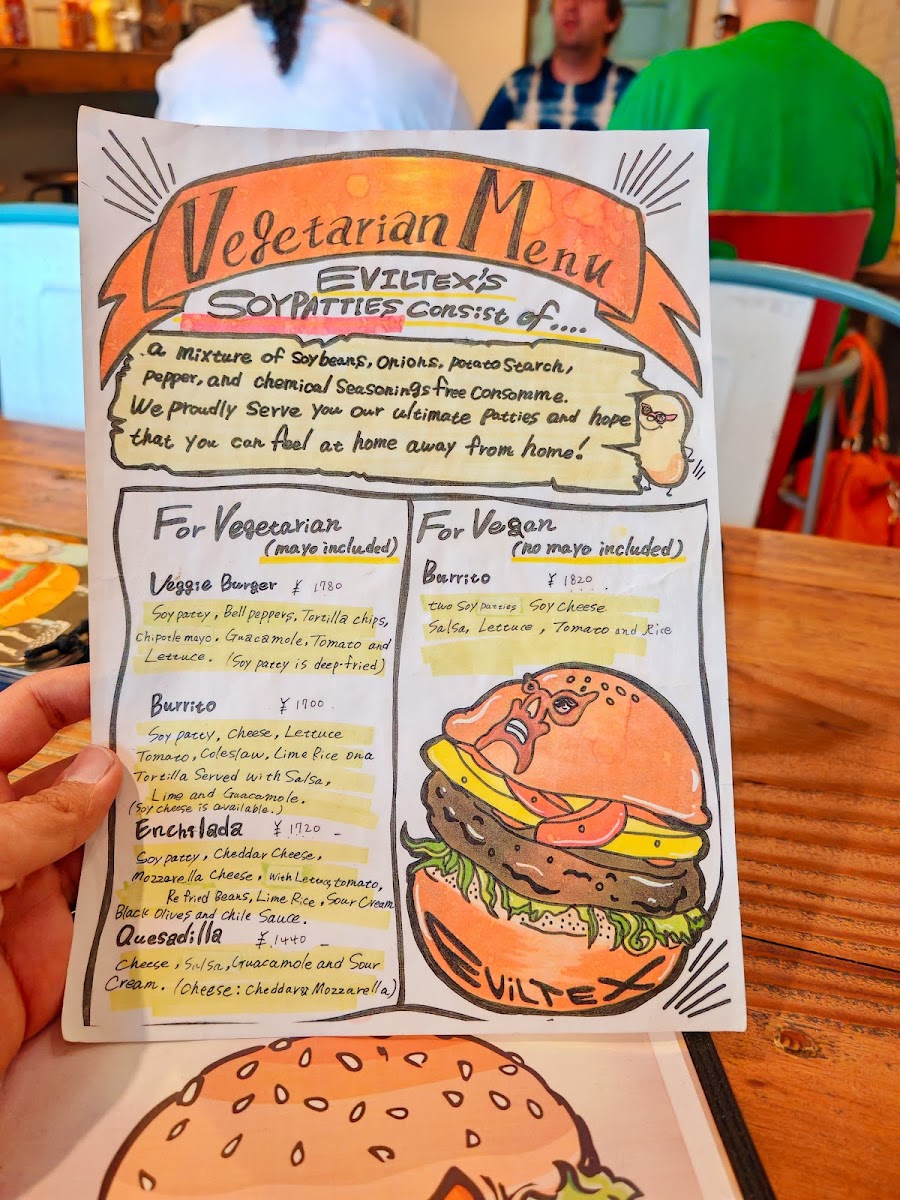 Vegetarian Menu
EVILTEX'S
SOYPATTIES consist of....
a mixture of Soybeans, Onions, potato Starch,
Pepper, and chemical Seasonings free Consomme.
We proudly Serve you our ultimate Patties and hope
that you can feel at home away from home!
For Vegetarian
(mayo included)
Veggie Burger ¥ 1780
Soy patty, Bell peppers, Tortilla chips,
chipotle mayo, Guacamole, Tomato and
Lettuce. (Soy patty is deep-fried)
Burrito ¥ 1700
Soy patty, Cheese, Lettuce
Tomato, Coleslaw, Lime Rice on a
Tortilla Served with Salsa,
Lime and Guacamole.
(Soy cheese is available.)
Enchilada ¥ 1720 -
Soy patty, Cheddar Cheese,
Mozzarella Cheese, with Lettuce, tomato,
Refried Beans, Lime Rice, Sour Cream
Black Olives and Chile Sauce.
Quesadilla ¥ 1440 -
Cheese, Salsa, Guacamole and Sour
Cream. (Cheese: Cheddar & Mozzarella)
For Vegan
(no mayo included)
Burrito ¥ 1820
two Soy patties, Soy cheese
Salsa, Lettuce, Tomato and Rice
EVILTEX